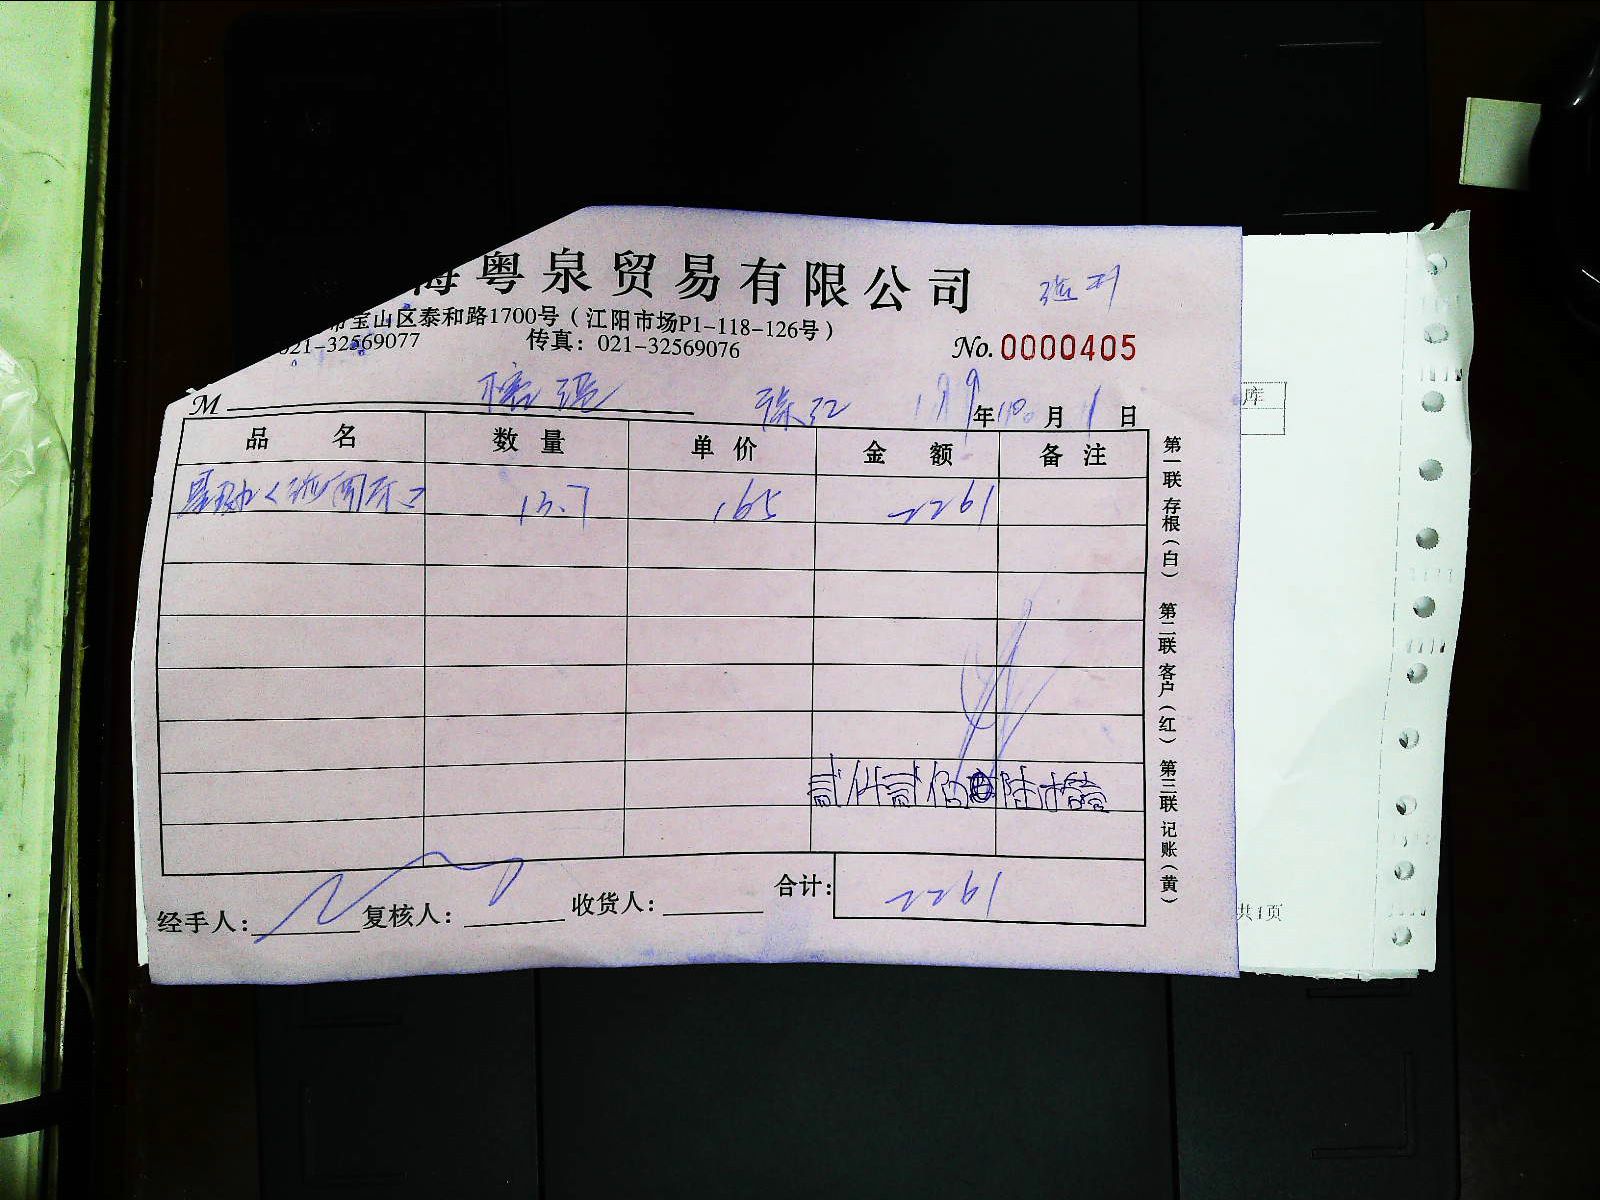 海粤泉贸易有限公司
市宝山区泰和路1700号(江阳市场P1-118-126号)
021-32569077 传真: 021-32569076
No. 0000405
M
19年10月1日
品名 数量 单价 金额 备注
13.7 165 2261
贰仟贰佰陆拾壹
合计: 2261
经手人: 复核人: 收货人:
第一联 存根(白) 第二联 客户(红) 第三联 记账(黄)
库
共1页